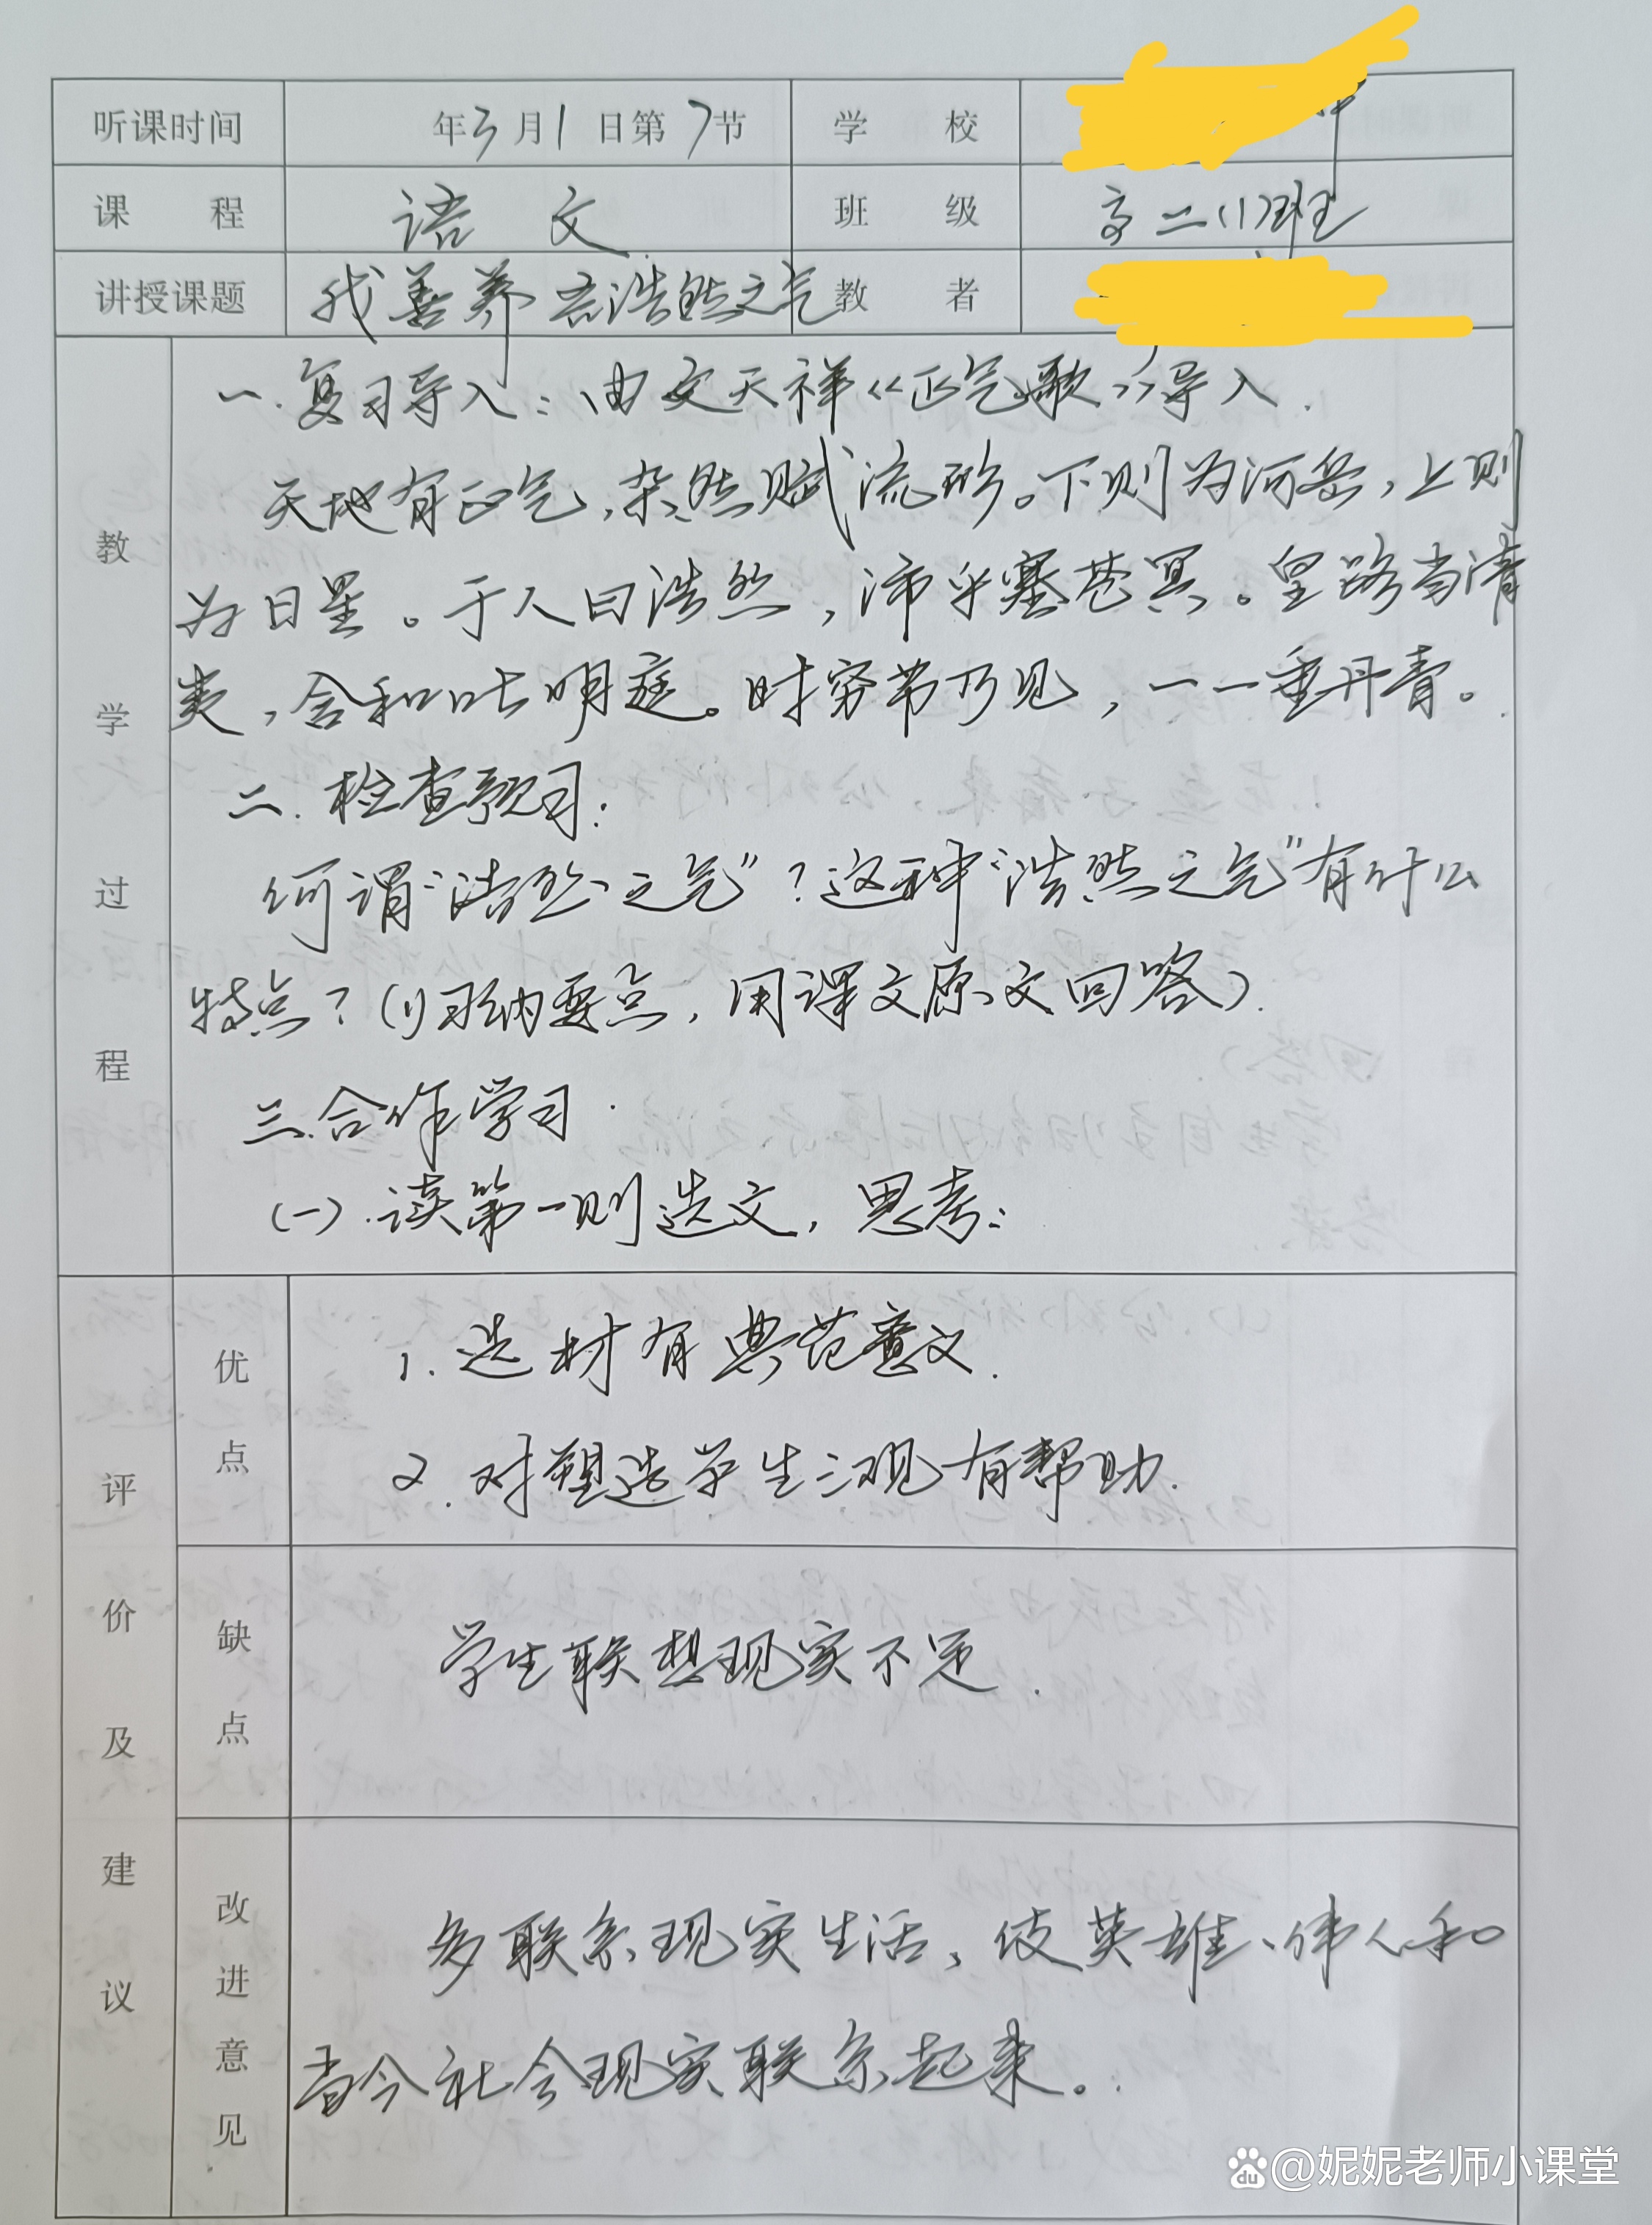 听课时间 年3月1日第7节 学校
课程 语文 班级 高二(1)班
讲授课题 我善养吾浩然之气 教者
教学过程
一.复习导入:由文天祥《正气歌》导入.
天地有正气,杂然赋流形。下则为河岳,上则
为日星。于人曰浩然,沛乎塞苍冥。皇路当清
夷,含和吐明庭。时穷节乃见,一一垂丹青。
二.检查预习:
何谓“浩然之气”?这种“浩然之气”有什么
特点?(归纳要点,用课文原文回答).
三.合作学习.
(一).读第一则选文,思考:
评价及建议
优点
1.选材有典范意义.
2.对塑造学生三观有帮助.
缺点
学生联想现实不足.
改进意见
多联系现实生活,使英雄、伟人和
当今社会现实联系起来。
Bai du @妮妮老师小课堂